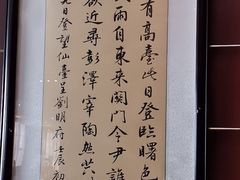 有高臺此日登臨曙色
雨自東来関門令尹誰
欲近尋彭澤宰陶然共
九日登望仙臺呈劉明府壬辰初